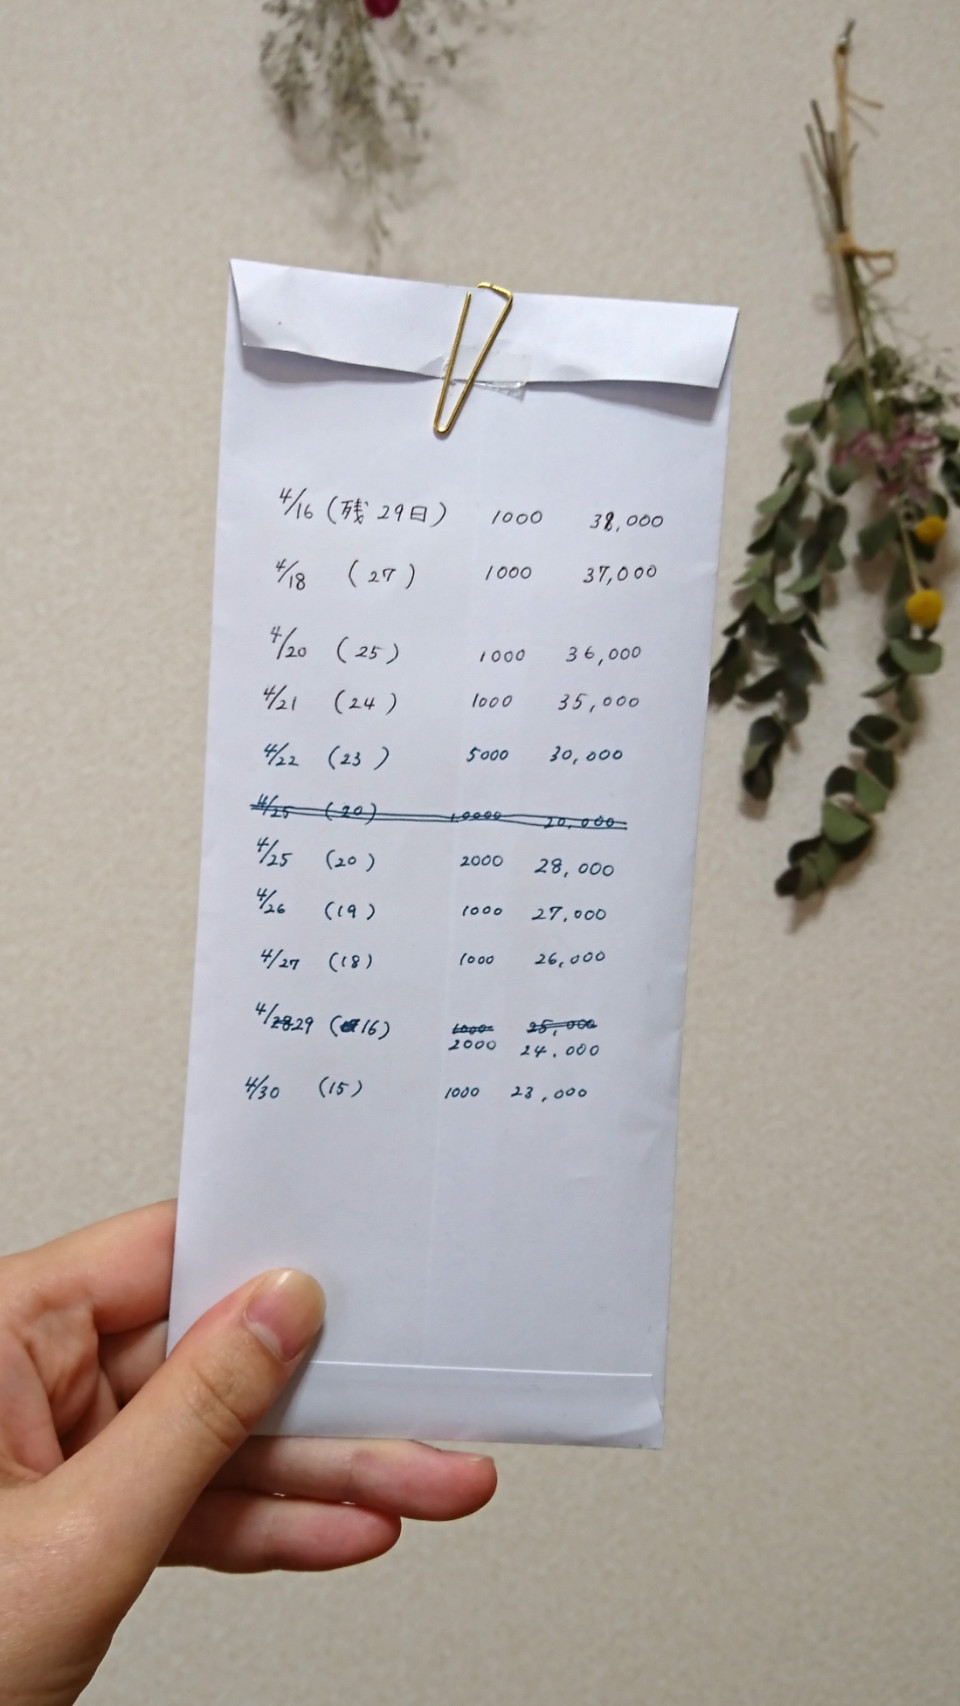 4/16 (残 29日) 1000 38,000
4/18 (27) 1000 37,000
4/20 (25) 1000 36,000
4/21 (24) 1000 35,000
4/22 (23) 5000 30,000
4/25 (20) 10000 20,000
4/25 (20) 2000 28,000
4/26 (19) 1000 27,000
4/27 (18) 1000 26,000
4/28 29 (16) 1000 25,000
2000 24,000
4/30 (15) 1000 23,000